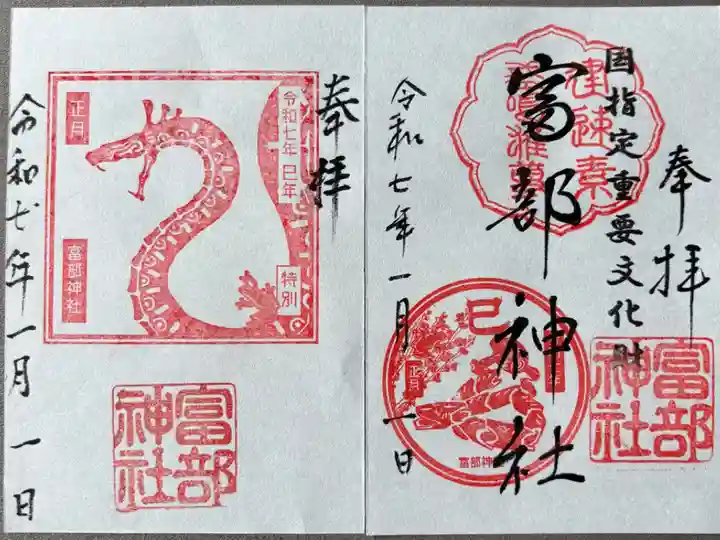 奉拝
令和七年 巳年
正月
特別
富部神社
富部神社
令和七年一月一日
奉拝
国指定重要文化財
富部神社
建速素
巳
正月
富部神
富部神社
令和七年一月一日